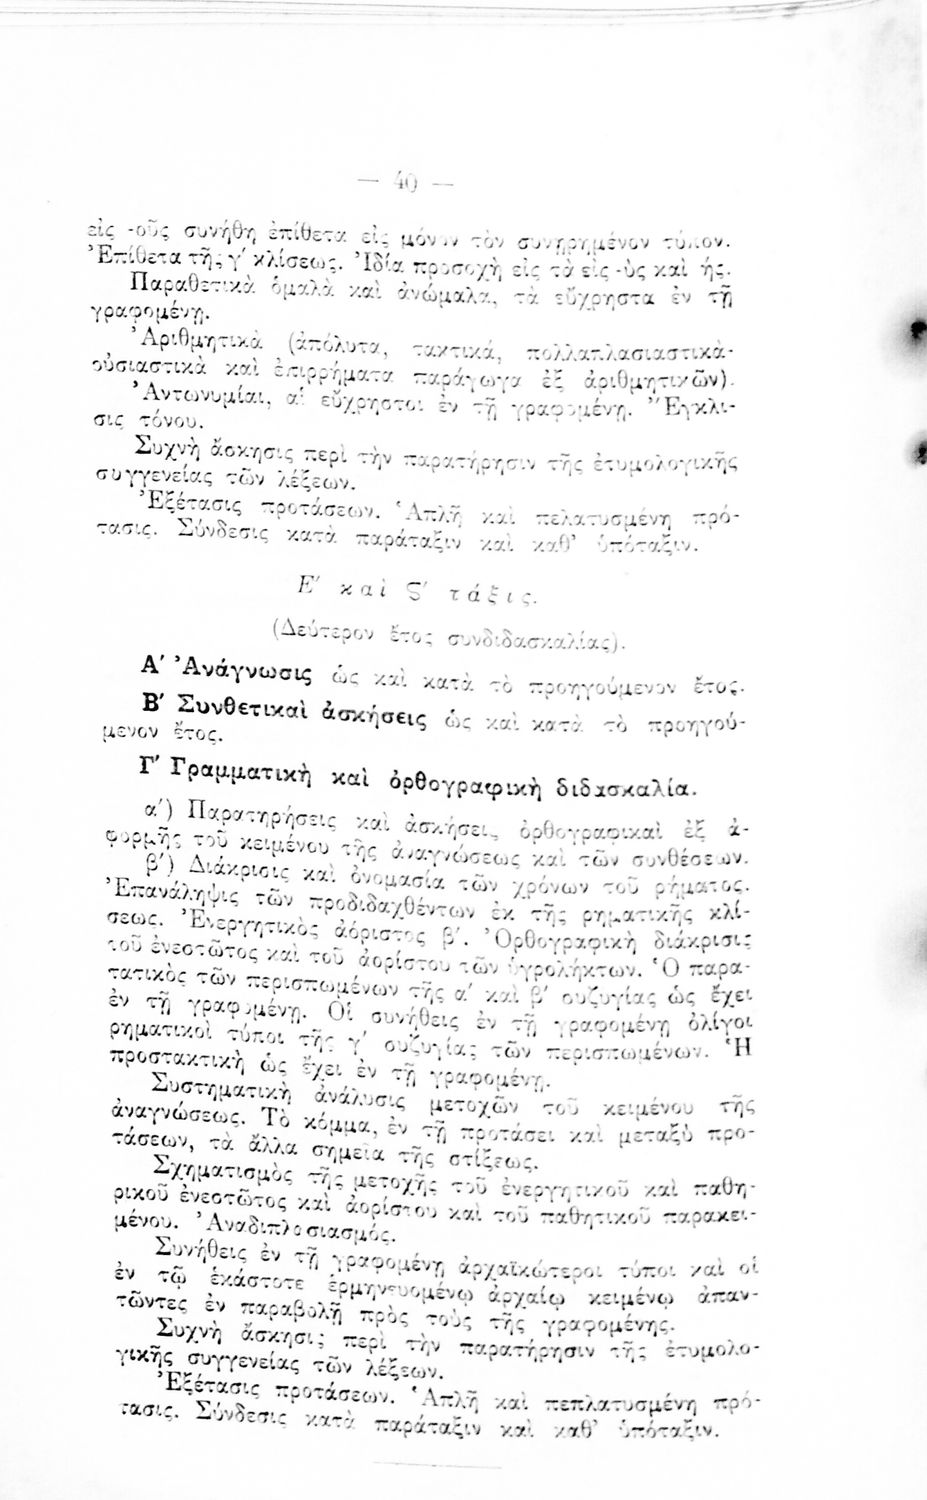 — 40 —
εἰς -οῦς συνήθη ἐπίθετα εἰς μόνον τὸν συνῃρημένον τύπον.
Ἐπίθετα τῆς γ′ κλίσεως. Ἰδία προσοχὴ εἰς τὰ εἰς -ὺς καὶ ής.
Παραθετικὰ ὁμαλὰ καὶ ἀνώμαλα, τὰ εὔχρηστα ἐν τῇ
γραφομένῃ.
Ἀριθμητικὰ (ἀπόλυτα, τακτικά, πολλαπλασιαστικὰ·
οὐσιαστικὰ καὶ ἐπιρρήματα παράγωγα ἐξ ἀριθμητικῶν).
Ἀντωνυμίαι, αἱ εὔχρηστοι ἐν τῇ γραφομένῃ. Ἔγκλι-
σις τόνου.
Συχνὴ ἄσκησις περὶ τὴν παρατήρησιν τῆς ἐτυμολογικῆς
συγγενείας τῶν λέξεων.
Ἐξέτασις προτάσεων. Ἁπλῆ καὶ πελατυσμένη πρό-
τασις. Σύνδεσις κατὰ παράταξιν καὶ καθ' ὑπόταξιν.
Ε′ καὶ Ϛ′ τάξις.
(Δεύτερον ἔτος συνδιδασκαλίας).
Α′ Ἀνάγνωσις ὡς καὶ κατὰ τὸ προηγούμενον ἔτος.
Β′ Συνθετικαὶ ἀσκήσεις ὡς καὶ κατὰ τὸ προηγού-
μενον ἔτος.
Γ′ Γραμματικὴ καὶ ὀρθογραφικὴ διδασκαλία.
α′) Παρατηρήσεις καὶ ἀσκήσεις ὀρθογραφικαὶ ἐξ ἀ-
φορμῆς τοῦ κειμένου τῆς ἀναγνώσεως καὶ τῶν συνθέσεων.
β′) Διάκρισις καὶ ὀνομασία τῶν χρόνων τοῦ ρήματος.
Ἐπανάληψις τῶν προδιδαχθέντων ἐκ τῆς ρηματικῆς κλί-
σεως. Ἐνεργητικὸς ἀόριστος β′. Ὀρθογραφικὴ διάκρισις
τοῦ ἐνεστῶτος καὶ τοῦ ἀορίστου τῶν ὑγρολήκτων. Ὁ παρα-
τατικὸς τῶν περισπωμένων τῆς α′ καὶ β′ συζυγίας ὡς ἔχει
ἐν τῇ γραφομένῃ. Οἱ συνήθεις ἐν τῇ γραφομένῃ ὀλίγοι
ρηματικοὶ τύποι τῆς γ′ συζυγίας τῶν περισπωμένων. Ἡ
προστακτικὴ ὡς ἔχει ἐν τῇ γραφομένῃ.
Συστηματικὴ ἀνάλυσις μετοχῶν τοῦ κειμένου τῆς
ἀναγνώσεως. Τὸ κόμμα, ἐν τῇ προτάσει καὶ μεταξὺ προ-
τάσεων, τὰ ἄλλα σημεῖα τῆς στίξεως.
Σχηματισμὸς τῆς μετοχῆς τοῦ ἐνεργητικοῦ καὶ παθη-
ρικοῦ ἐνεστῶτος καὶ ἀορίστου καὶ τοῦ παθητικοῦ παρακει-
μένου. Ἀναδιπλασιασμός.
Συνήθεις ἐν τῇ γραφομένῃ ἀρχαϊκώτεροι τύποι καὶ οἱ
ἐν τῷ ἑκάστοτε ἑρμηνευομένῳ ἀρχαίῳ κειμένῳ ἀπαν-
τῶντες ἐν παραβολῇ πρὸς τοὺς τῆς γραφομένης.
Συχνὴ ἄσκησις περὶ τὴν παρατήρησιν τῆς ἐτυμολο-
γικῆς συγγενείας τῶν λέξεων.
Ἐξέτασις προτάσεων. Ἁπλῆ καὶ πεπλατυσμένη πρό-
τασις. Σύνδεσις κατὰ παράταξιν καὶ καθ' ὑπόταξιν.